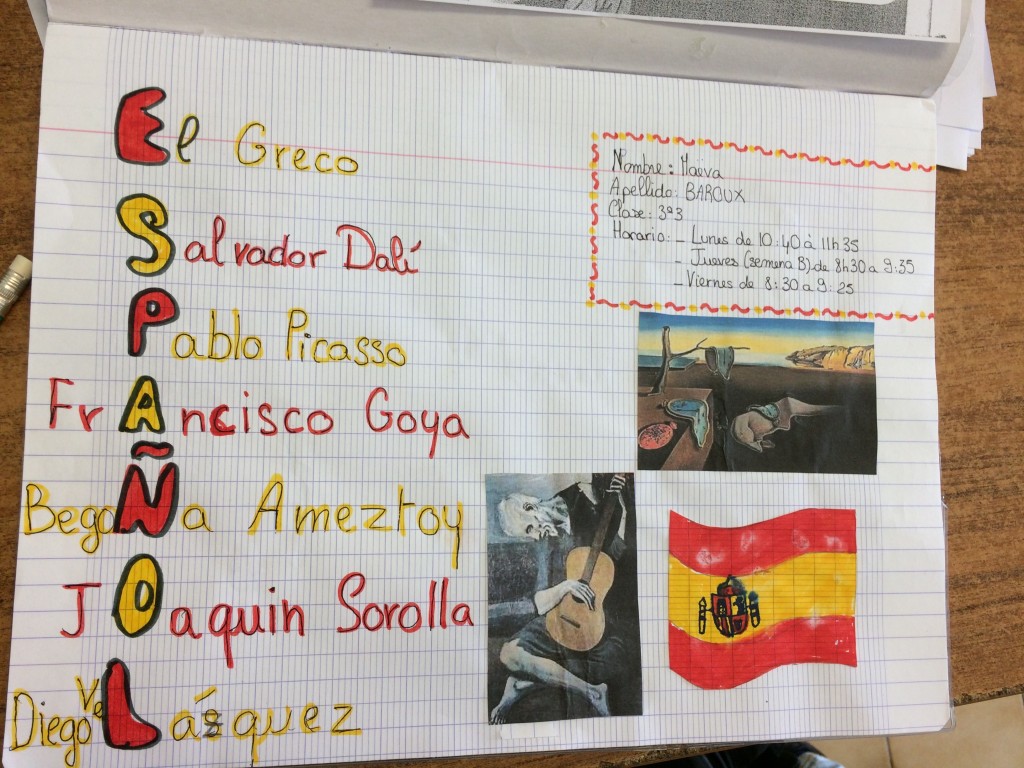 El Greco
Salvador Dalí
Pablo Picasso
FrAncisco Goya
BegoÑa Ameztoy
JOaquin Sorolla
Diego VeLázquez
Nombre: Maëva
Apellido: BAROUX
Clase: 3ª3
Horario: - Lunes de 10:40 à 11h35
- Jueves (semena B) de 8h30 a 9:35
- Viernes de 8:30 a 9:25